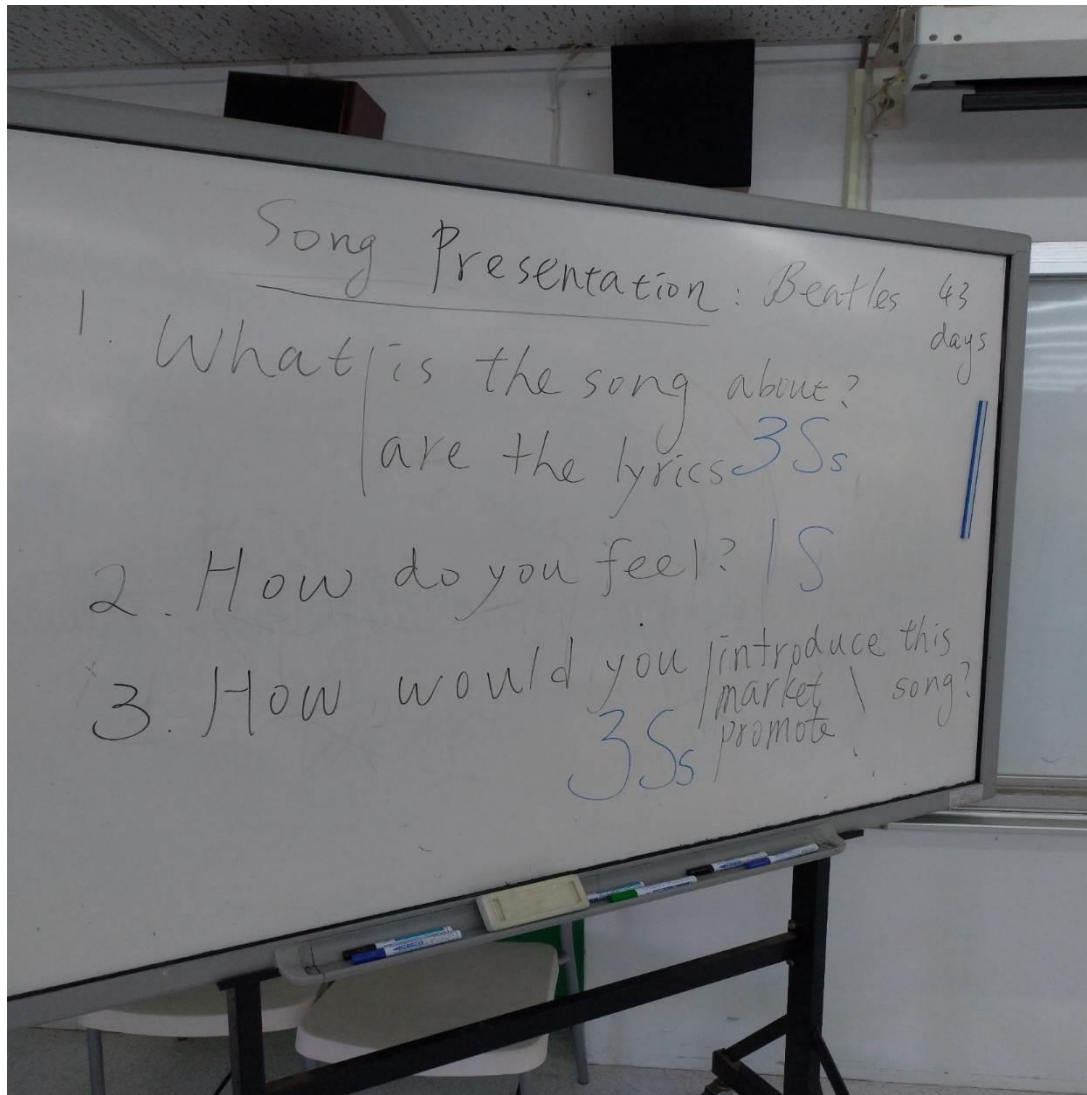 Song Presentation : Beatles 43
days
1. What is the song about?
are the lyrics 3Ss
2. How do you feel? 1S
3. How would you introduce this
market song?
promote
3Ss